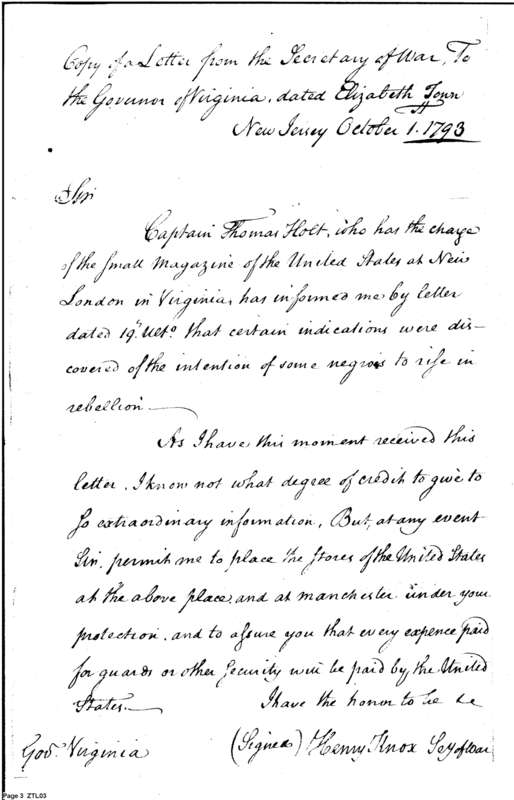 Copy of a Letter from the Secretary of War, To
the Governor of Virginia. dated Elizabeth Town
New Jersey October 1. 1793
Sir
Captain Thomas Holt, who has the charge
of the small Magazine of the United States at New
London in Virginia, has informed me by letter
dated 19th Ulto. that certain indications were dis-
covered of the intention of some negros to rise in
rebellion
As I have this moment received this
letter, I know not what degree of credit to give to
so extraordinary information, But, at any event
Sir, permit me to place the stores of the United States
at the above place, and at manchester under your
protection. and to assure you that every expence paid
for guards or other security will be paid by the United
States.
I have the honor to be &c
(Signed) Henry Knox Secy of War
Govr. Virginia
Page 3 ZTL03